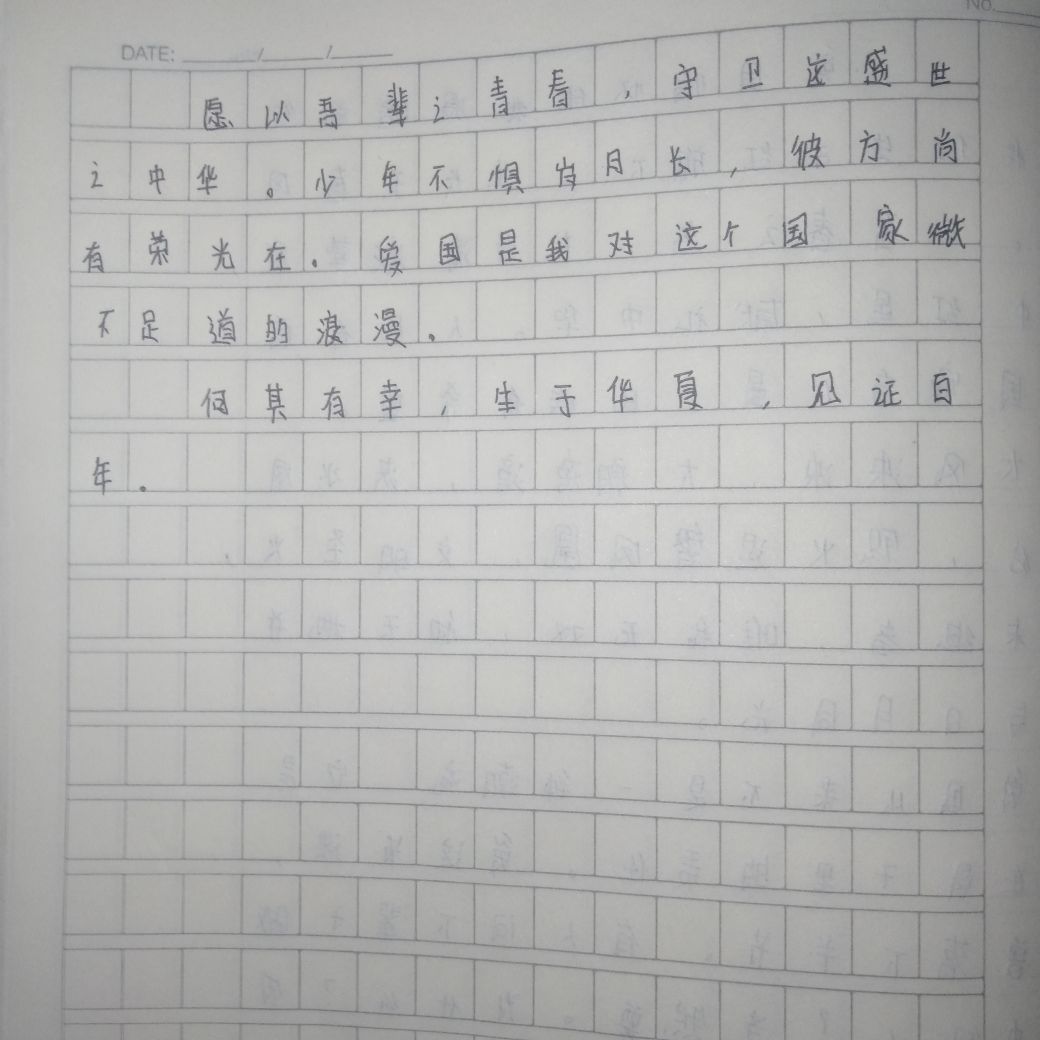 No.
DATE: / /
愿以吾辈之青春,守卫这盛世
之中华。少年不惧岁月长,彼方尚
有荣光在.爱国是我对这个国家微
不足道的浪漫.
何其有幸,生于华夏,见证百
年.